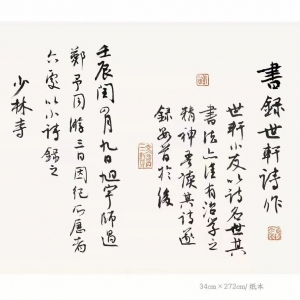 書錄世軒詩作
世軒小友以詩名世其
書法亦佳有治學之
精神幸讀其詩遂
錄如首於後
壬辰閏四月九日旭宇師過
鄭予同游三日因紀所歷者
六處以小詩錄之
少林寺
34cm×272cm/纸本